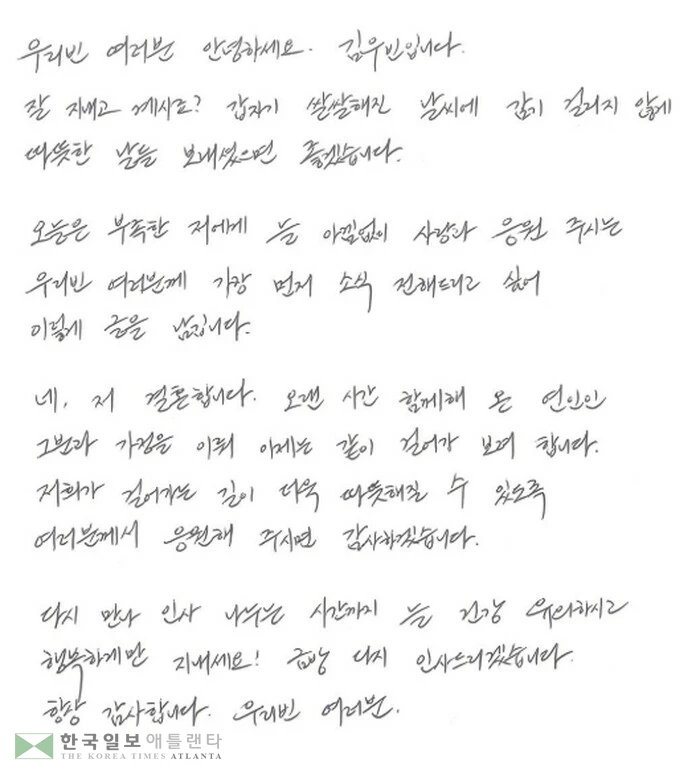 우리빈 여러분 안녕하세요. 김우빈입니다.
잘 지내고 계시죠? 갑자기 쌀쌀해진 날씨에 감기 걸리지 않게
따뜻한 날들 보내셨으면 좋겠습니다.
오늘은 부족한 저에게 늘 아낌없이 사랑과 응원 주시는
우리빈 여러분께 가장 먼저 소식 전해드리고 싶어
이렇게 글을 남깁니다.
네, 저 결혼합니다. 오랜 시간 함께해 온 연인인
그분과 가정을 이뤄 이제는 같이 걸어가 보려 합니다.
저희가 걸어가는 길이 더욱 따뜻해질 수 있도록
여러분께서 응원해 주시면 감사하겠습니다.
다시 만나 인사 나누는 시간까지 늘 건강 유의하시고
행복하게만 지내세요! 금방 다시 인사드리겠습니다.
항상 감사합니다. 우리빈 여러분.
한국일보 애틀랜타
THE KOREA TIMES ATLANTA